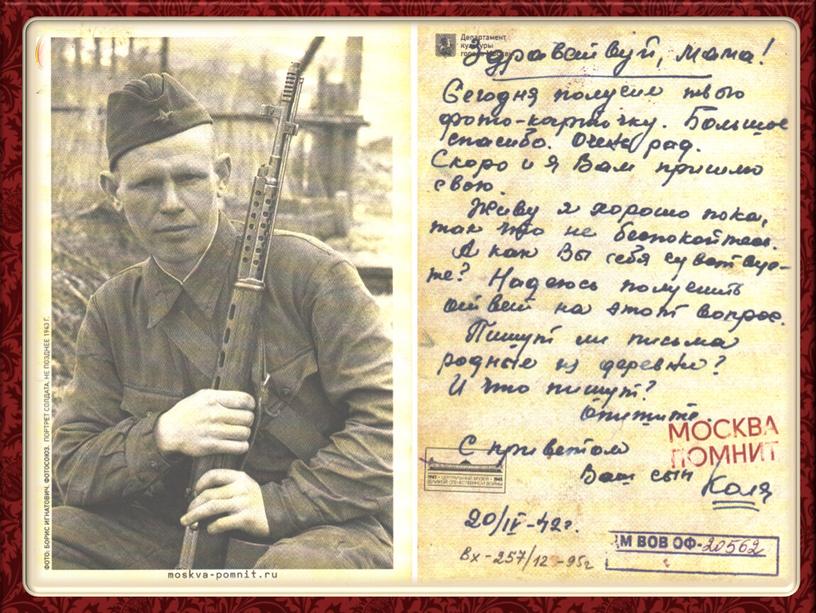 ФОТО: БОРИС ИГНАТОВИЧ. ФОТОСОЮЗ. ПОРТРЕТ СОЛДАТА. НЕ ПОЗДНЕЕ 1943 Г.
moskva-pomnit.ru
Департамент
культуры
города Москвы
Здравствуй, мама!
Сегодня получил твою
фото-карточку. Большое
спасибо. Очень рад.
Скоро и я Вам пришлю
свою.
Живу я хорошо пока,
так что не беспокойтесь.
А как Вы себя чувствуе-
те? Надеюсь получить
ответ на этот вопрос.
Пишут ли письма
родные из деревни?
И что пишут?
Опишите.
С приветом
Ваш сын Коля
20/IV-42г.
МОСКВА
ПОМНИТ
1941 • ЦЕНТРАЛЬНЫЙ МУЗЕЙ • 1945
ВЕЛИКОЙ ОТЕЧЕСТВЕННОЙ ВОЙНЫ
М ВОВ ОФ-20562
Вх-257/12-95г